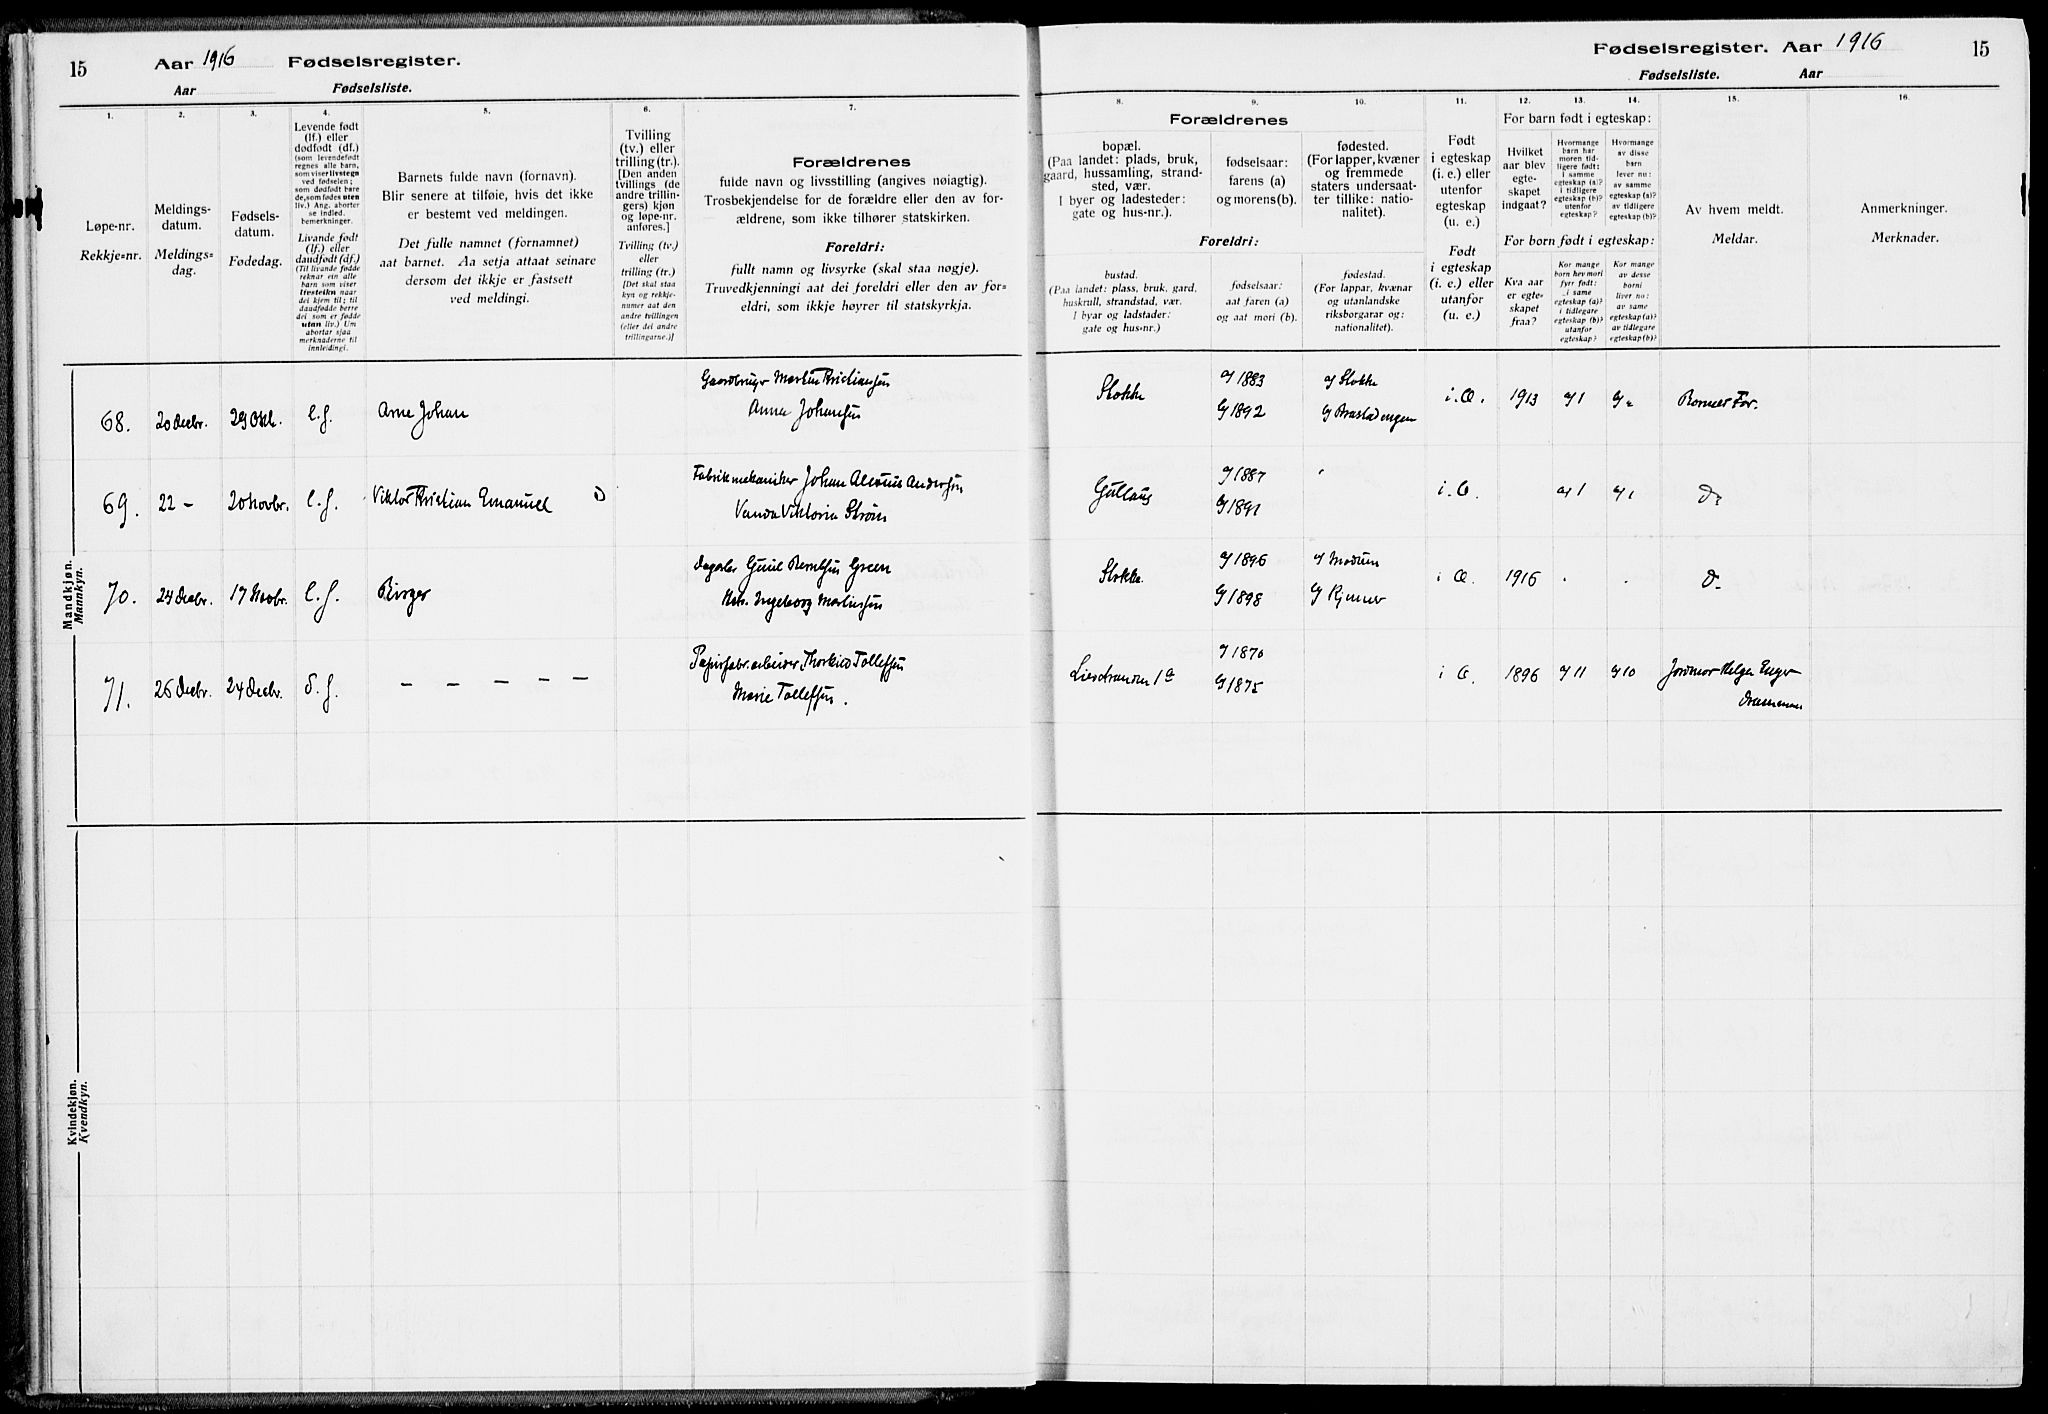 15
Aar 1916 Fødselsregister.
Aar Fødselsliste.
1.
2.
3.
4.
5.
6.
7.
Løpe-nr.
Rekkje=nr.
Meldings-
datum.
Meldings=
dag.
Fødsels-
datum.
Fødedag.
Levende født
(lf.) eller
dødfødt (df.)
(som levendefødt
regnes alle barn,
som viser livstegn
ved fødselen;
som dødfødt bare
de, som fødes uten
liv.) Ang. aborter
se indled.
bemerkninger.
Livande født
(lf.) eller
daudfødt (df.)
(Til livande fødde
reknar ein alle
barn som viser
livsteikn naar
dei kjem til; til
daudfødde berre
dei som er fødde
utan liv.) Um
abortar sjaa
merknaderne til
innleidingi.
Barnets fulde navn (fornavn).
Blir senere at tilføie, hvis det ikke
er bestemt ved meldingen.
Det fulle namnet (fornamnet)
aat barnet. Aa setja attaat seinare
dersom det ikkje er fastsett
ved meldingi.
Tvilling
(tv.) eller
trilling (tr.).
[Den anden
tvillings (de
andre trillin-
gers) kjøn
og løpe-nr.
anføres.]
Tvilling (tv.)
eller
trilling (tr.)
[Det skal staa
kyn og rekkje-
numer aat den
andre tvillingen
(eller dei andre
trillingarne.)]
Forældrenes
fulde navn og livsstilling (angives nøiagtig).
Trosbekjendelse for de forældre eller den av for-
ældrene, som ikke tilhører statskirken.
Foreldri:
fullt namn og livsyrke (skal staa nøgje).
Truvedkjenningi aat dei foreldri eller den av for=
eldri, som ikkje høyrer til statskyrkja.
Mandkjøn.
Mannkyn.
68. 20 Decbr. 29 Okt. l.f. Arne Johan
Gaardbruger Martin Kristiansen
Anna Johansen
69. 22 - 20 Novbr. l.f. Viktor Kristian Emanuel
Fabrikmekaniker Johan Andersen
Vanda Viktoria Strøm
70. 24 Decbr. 17 Novbr. l.f. Birger
Emil Berntsen Green
Ingeborg Martinsen
71. 26 Decbr. 24 Decbr. d.f. - - - - -
Papirfabr.arbeider Thorkild Tollefsen
Marie Tollefsen.
Kvindekjøn.
Kvendkyn.
Fødselsregister. Aar 1916 15
Fødselsliste. Aar
8.
9.
10.
11.
12.
13.
14.
15.
16.
Forældrenes
bopæl.
(Paa landet: plads, bruk,
gaard, hussamling, strand-
sted, vær.
I byer og ladesteder:
gate og hus-nr.).
fødselsaar:
farens (a)
og morens(b).
fødested.
(For lapper, kvæner
og fremmede
staters undersaat-
ter tillike: natio-
nalitet).
Foreldri:
bustad.
(Paa landet: plass, bruk, gard,
huskrull, strandstad, vær.
I byar og ladstader:
gate og hus-nr.)
fødselsaar:
aat faren (a)
og aat mori (b).
fødestad.
(For lappar, kvænar
og utanlandske
riksborgarar og:
nationalitet).
Født
i egteskap
(i. e.) eller
utenfor
egteskap
(u. e.)
Født
i egteskap
(i. e.) eller
utanfor
(u. e.)
For barn født i egteskap:
Hvilket
aar blev
egte-
skapet
indgaat?
Hvormange
barn har
moren tid-
ligere født:
i samme
egteskap (a)?
i tidligere
egteskap (b)?
utenfor
egteskap?
Hvormange
av disse
barn
lever nu:
av samme
egteskap (a)?
av tidligere
egteskap (b)?
For born født i egteskap:
Kva aar
er egte=
skapet
fraa?
Kor mange
born hev mori
fyrr født:
i same
egteskap (a)?
i tidlegare
egteskap (b)?
utanfor
egteskap?
Kor mange
av desse
borni
liver no:
av same
egteskap (a)?
av tidlegare
egteskap (b)?
Av hvem meldt.
Meldar.
Anmerkninger.
Merknader.
Stokke
a) 1883
b) 1892
a) Stokke
i. E. 1913 a) 1 Barnets Far.
Gullaug
a) 1887
b) 1891
i. E. a) 1 a) 1 Do
Stokke
a) 1896
b) 1898
a) Modum
i E. 1916 Do
Lierstranden 1a
a) 1870
b) 1875
i E. 1896 a) 11 a) 10 Jordmor Helga Enger
Drammen